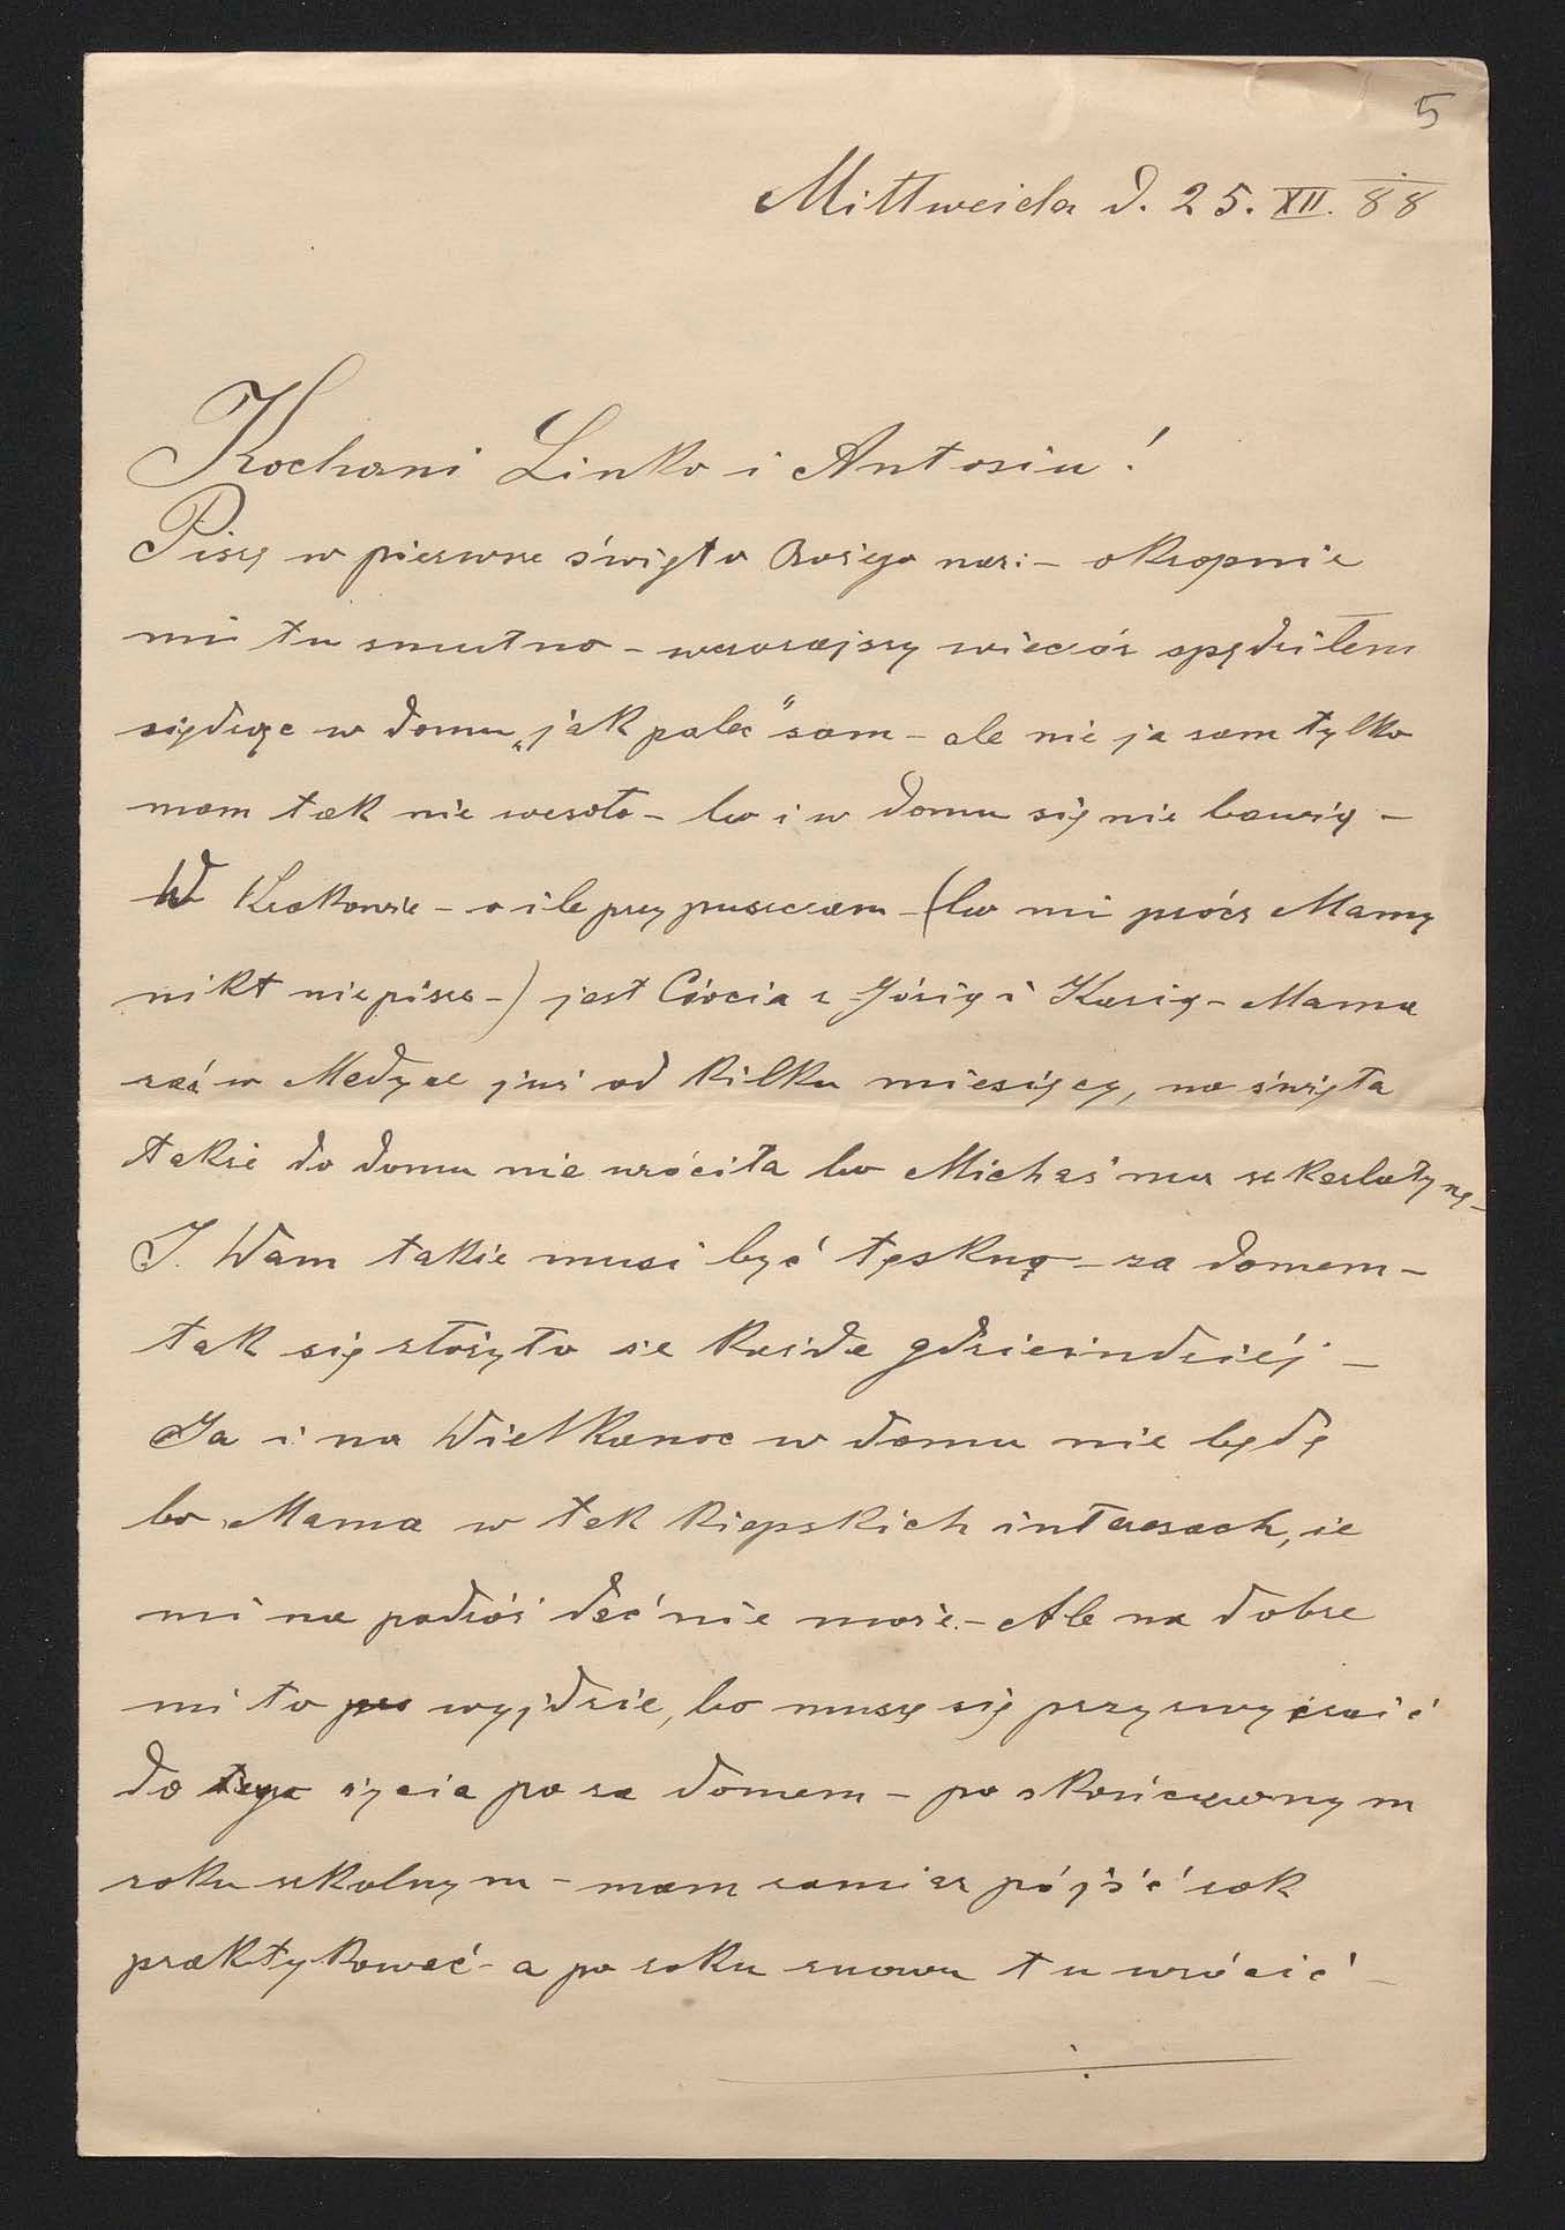 5
Mittweida d. 25. XII. 88
Kochani Linko i Antosiu!
Piszę w pierwsze święto Bożego nar: - okropnie
mi tu smutno - wczorajszy wieczór spędziłem
siędząc w domu „jak palec" sam - ale nie ja sam tylko
mam tak nie wesoło - bo i w domu się nie bawią -
W Krakowie - o ile przypuszczam - (bo mi prócz Mamy
nikt niepisze -) jest Ciocia z Józią i Kazią - Mama
zaś w Medyce już od kilku miesięcy, na święta
także do domu nie wróciła bo Michaś ma szkarlatynę -
I Wam także musi być tęskno - za domem -
tak się złożyło że każde gdzieindziéj -
Ja i na Wielkanoc w domu nie będę
bo Mama w tak kiepskich interesach, że
mi na podróż dać nie może. - Ale na dobre
mi to wyjdzie, bo muszę się przyzwyczaić
do tego życia po za domem - po skończonym
roku szkolnym - mam zamiar pójść rok
praktykować - a po roku znowu tu wrócić -